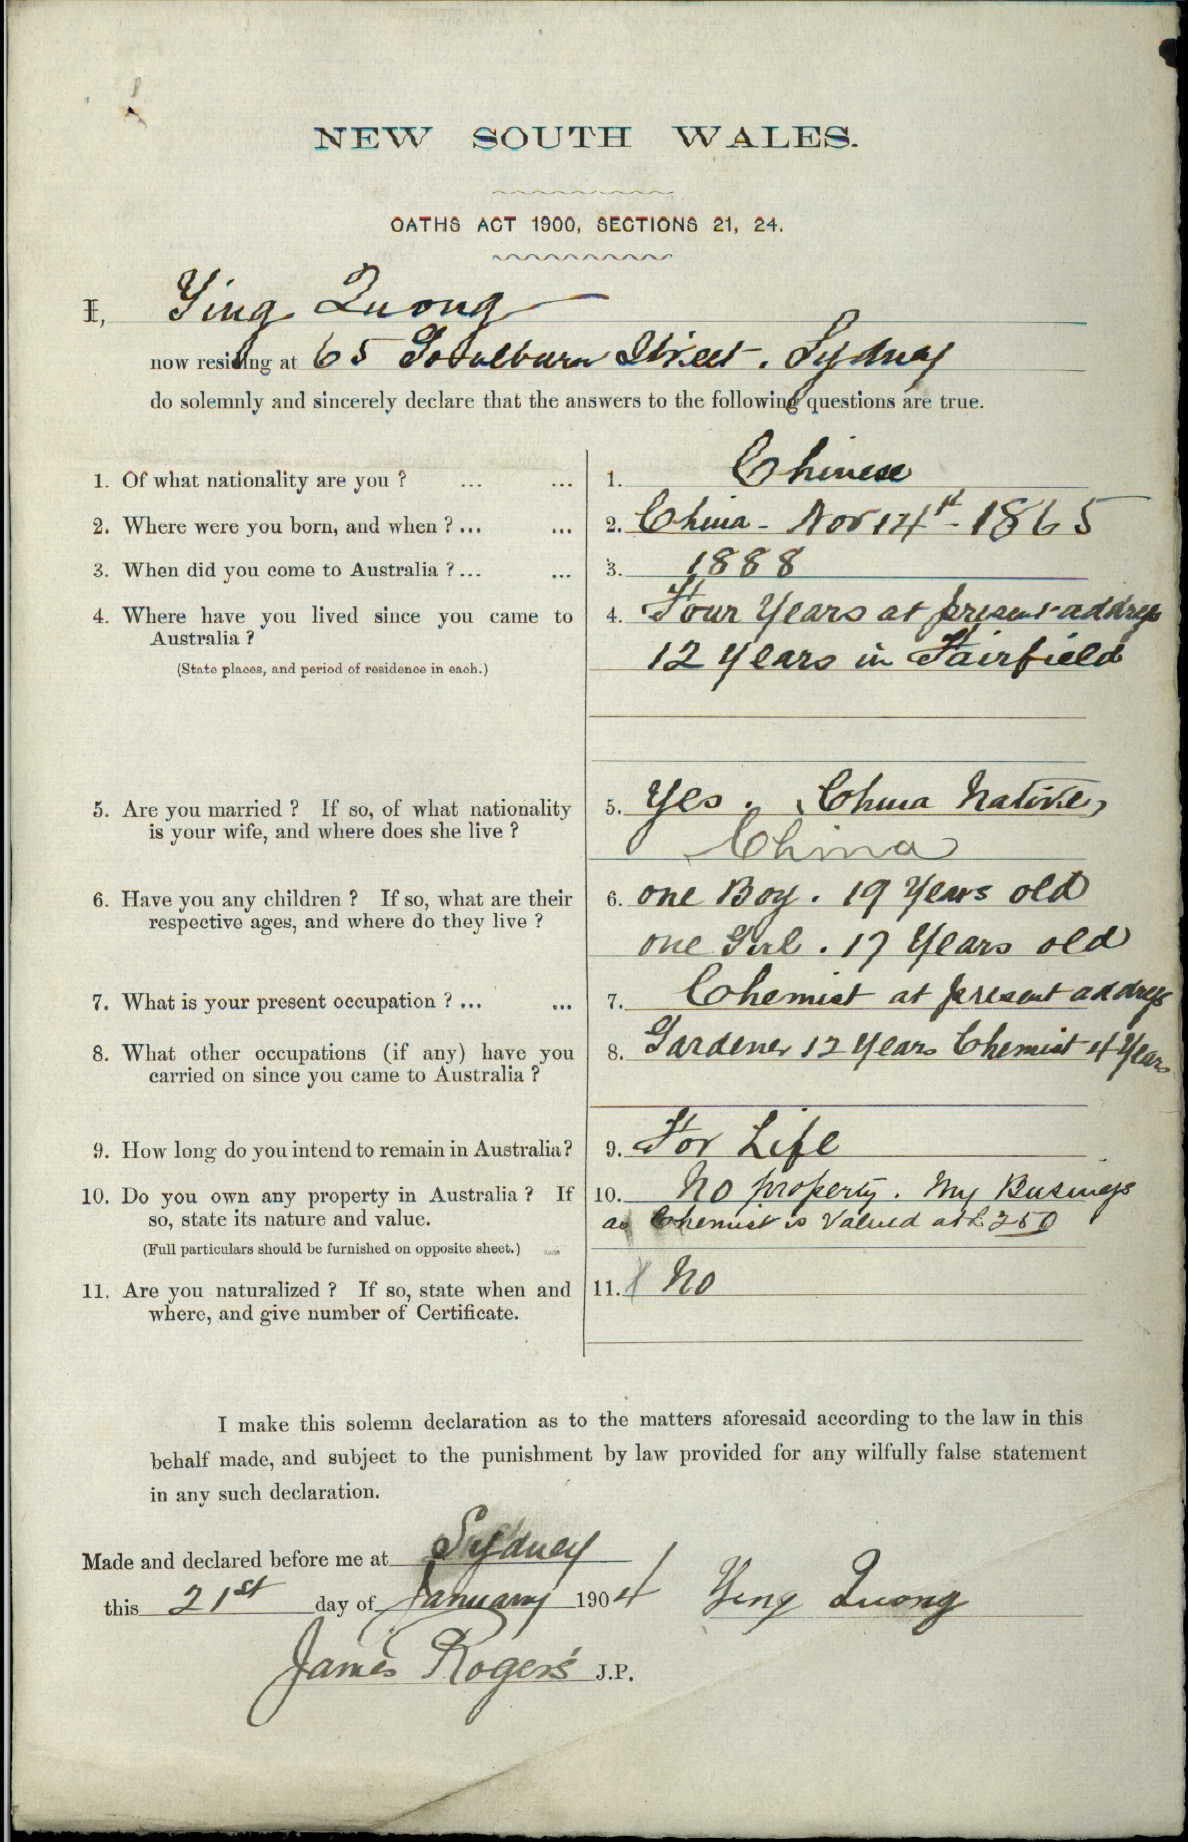 NEW SOUTH WALES.
OATHS ACT 1900, SECTIONS 21, 24.
I, Ying Quong
now residing at 65 Goulburn Street. Sydney
do solemnly and sincerely declare that the answers to the following questions are true.
1. Of what nationality are you ? ... ... 1. Chinese
2. Where were you born, and when ? ... ... 2. China - Nov 14st - 1865
3. When did you come to Australia ? ... ... 3. 1888
4. Where have you lived since you came to 4. Four Years at present address
Australia ?
(State places, and period of residence in each.) 12 Years in Fairfield
5. Are you married ? If so, of what nationality 5. Yes. China Native,
is your wife, and where does she live ? China
6. Have you any children ? If so, what are their 6. one Boy. 19 Years old
respective ages, and where do they live ? one Girl. 17 Years old
7. What is your present occupation ? ... ... 7. Chemist at present address
8. What other occupations (if any) have you 8. Gardener 12 Years Chemist 4 Years
carried on since you came to Australia ?
9. How long do you intend to remain in Australia? 9. For Life
10. Do you own any property in Australia ? If 10. No property. My Business
so, state its nature and value. as Chemist is Valued at £250
(Full particulars should be furnished on opposite sheet.)
11. Are you naturalized ? If so, state when and 11. X No
where, and give number of Certificate.
I make this solemn declaration as to the matters aforesaid according to the law in this
behalf made, and subject to the punishment by law provided for any wilfully false statement
in any such declaration.
Made and declared before me at Sydney
this 21st day of January 1904 Ying Quong
James Rogers J.P.